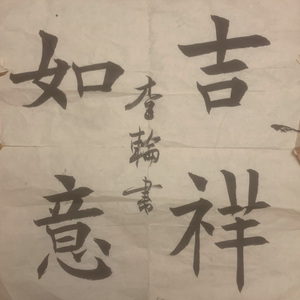 吉祥
如意
李輪書